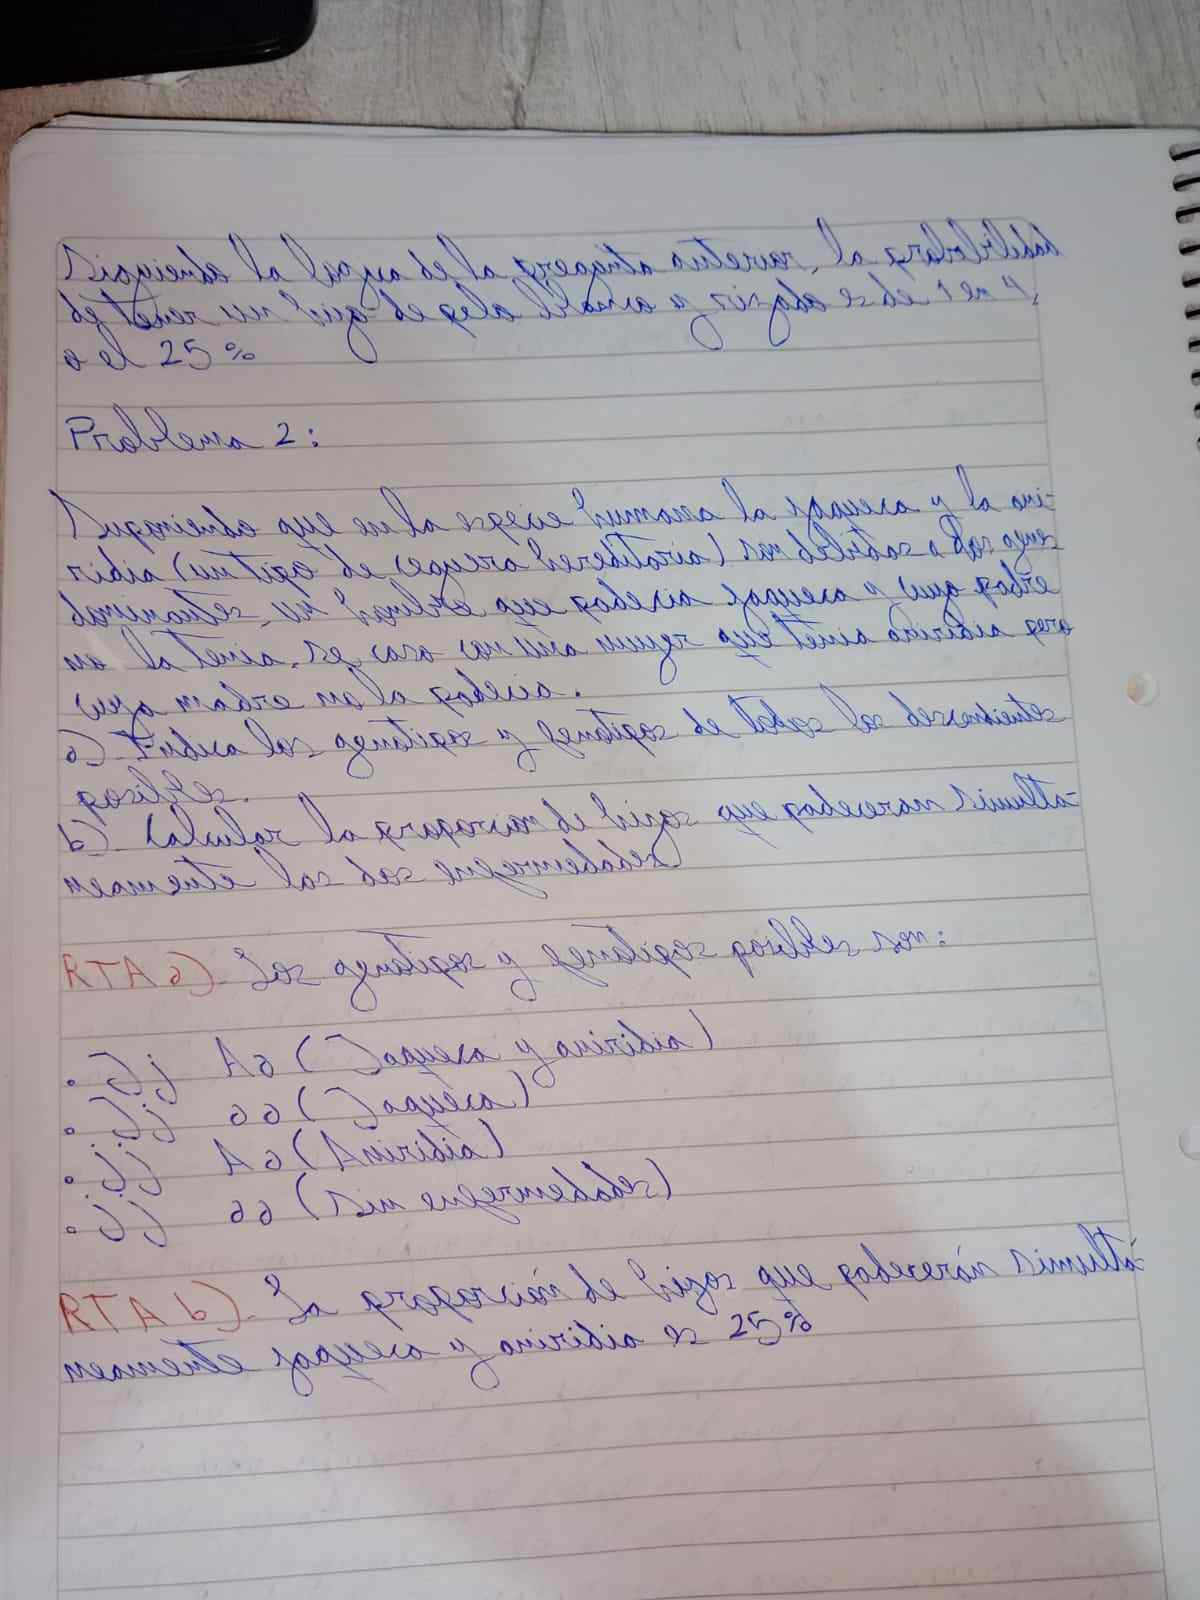 Siguiendo la logica de la pregunta anterior, la probabilidad
de tener un hijo de pelo blanco y rizado es de 1 en 4,
o el 25%
Problema 2:
Suponiendo que en la especie humana la jaqueca y la ani-
ridia (un tipo de ceguera hereditaria) son debidas a dos genes
dominantes, un hombre que padecía jaqueca y cuyo padre
no la tenía, se caso con una mujer que tenía aniridia pero
cuya madre no la padecia.
a) Indica los genotipos y fenotipos de todos los descendientes
posibles.
b) Calcular la proporcion de hijos que padeceran simulta-
neamente las dos enfermedades
RTA a) Los genotipos y fenotipos posibles son:
• Jj Aa (Jaqueca y aniridia)
• Jj aa (Jaqueca)
• jj Aa (Aniridia)
• jj aa (sin enfermedades)
RTA b) La proporción de hijos que padecerán simultá-
neamente jaqueca y aniridia es 25%